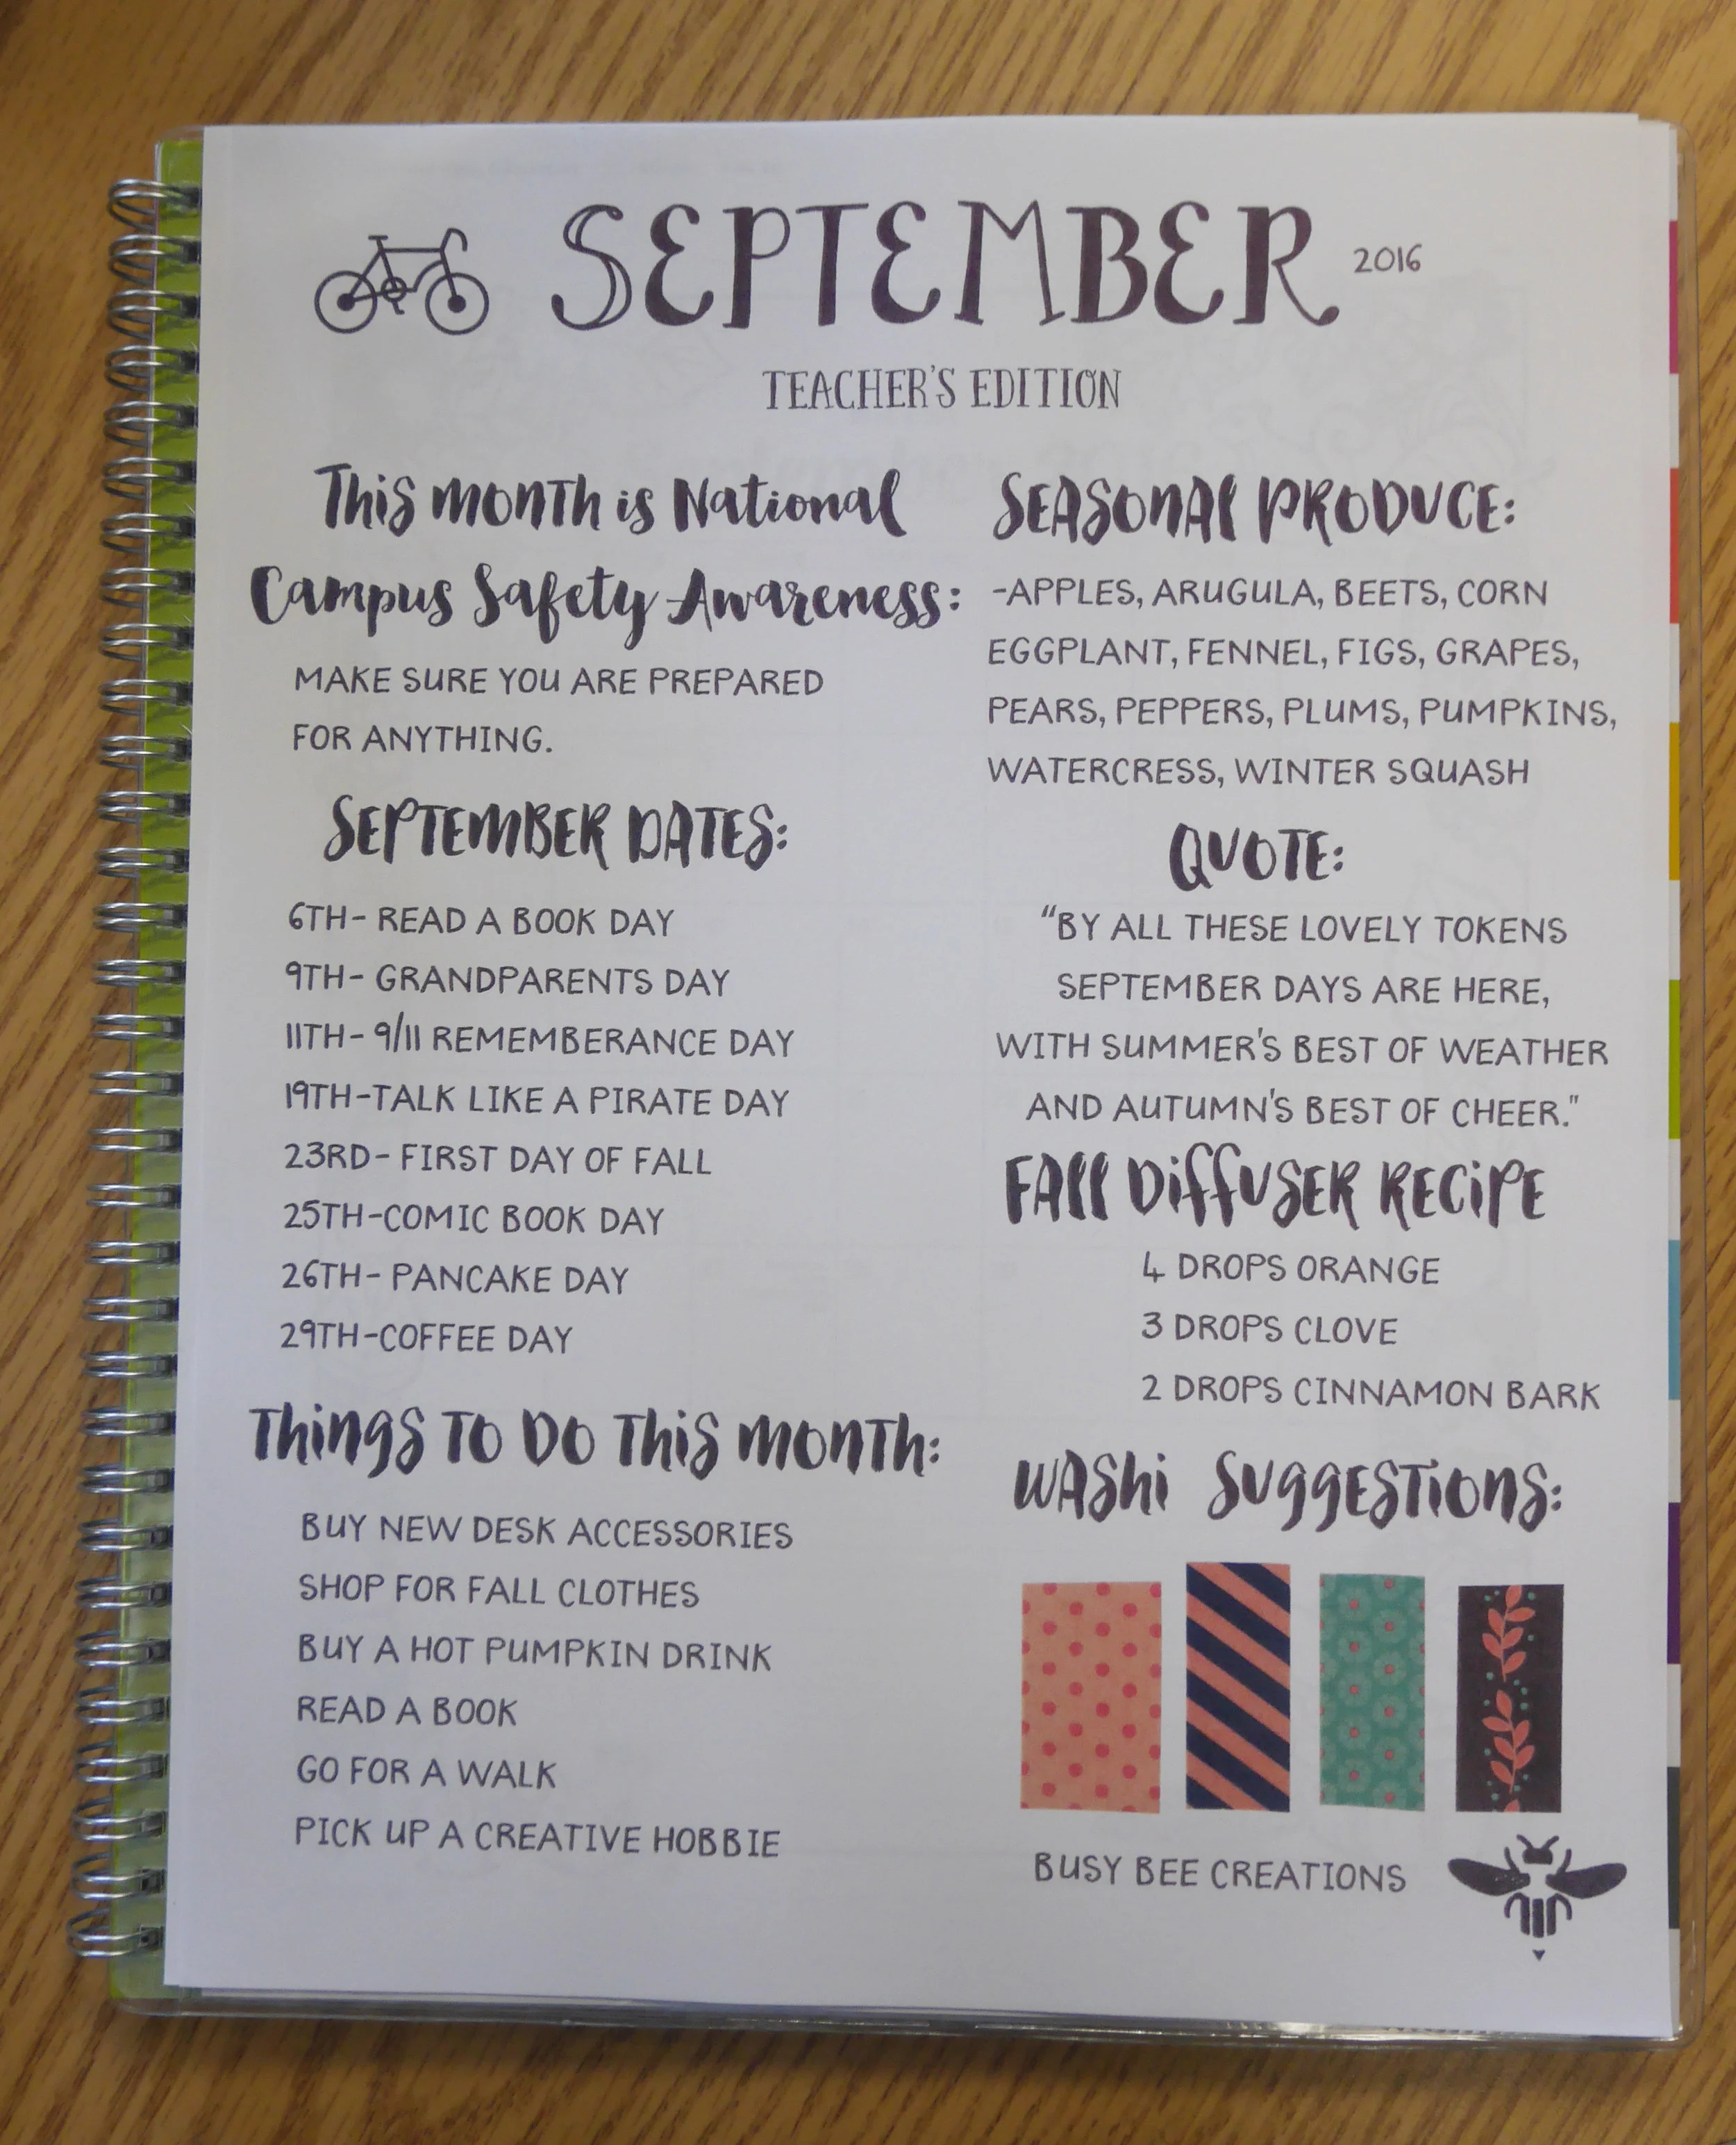 SEPTEMBER 2016
TEACHER'S EDITION
This month is National
Campus Safety Awareness:
MAKE SURE YOU ARE PREPARED
FOR ANYTHING.
SEPTEMBER DATES:
6TH- READ A BOOK DAY
9TH- GRANDPARENTS DAY
11TH- 9/11 REMEMBERANCE DAY
19TH-TALK LIKE A PIRATE DAY
23RD- FIRST DAY OF FALL
25TH-COMIC BOOK DAY
26TH- PANCAKE DAY
29TH-COFFEE DAY
Things to do this month:
BUY NEW DESK ACCESSORIES
SHOP FOR FALL CLOTHES
BUY A HOT PUMPKIN DRINK
READ A BOOK
GO FOR A WALK
PICK UP A CREATIVE HOBBIE
SEASONAL PRODUCE:
-APPLES, ARUGULA, BEETS, CORN
EGGPLANT, FENNEL, FIGS, GRAPES,
PEARS, PEPPERS, PLUMS, PUMPKINS,
WATERCRESS, WINTER SQUASH
QUOTE:
“BY ALL THESE LOVELY TOKENS
SEPTEMBER DAYS ARE HERE,
WITH SUMMER'S BEST OF WEATHER
AND AUTUMN'S BEST OF CHEER."
FALL DIFFUSER RECIPE
4 DROPS ORANGE
3 DROPS CLOVE
2 DROPS CINNAMON BARK
WASHI SUGGESTIONS:
BUSY BEE CREATIONS